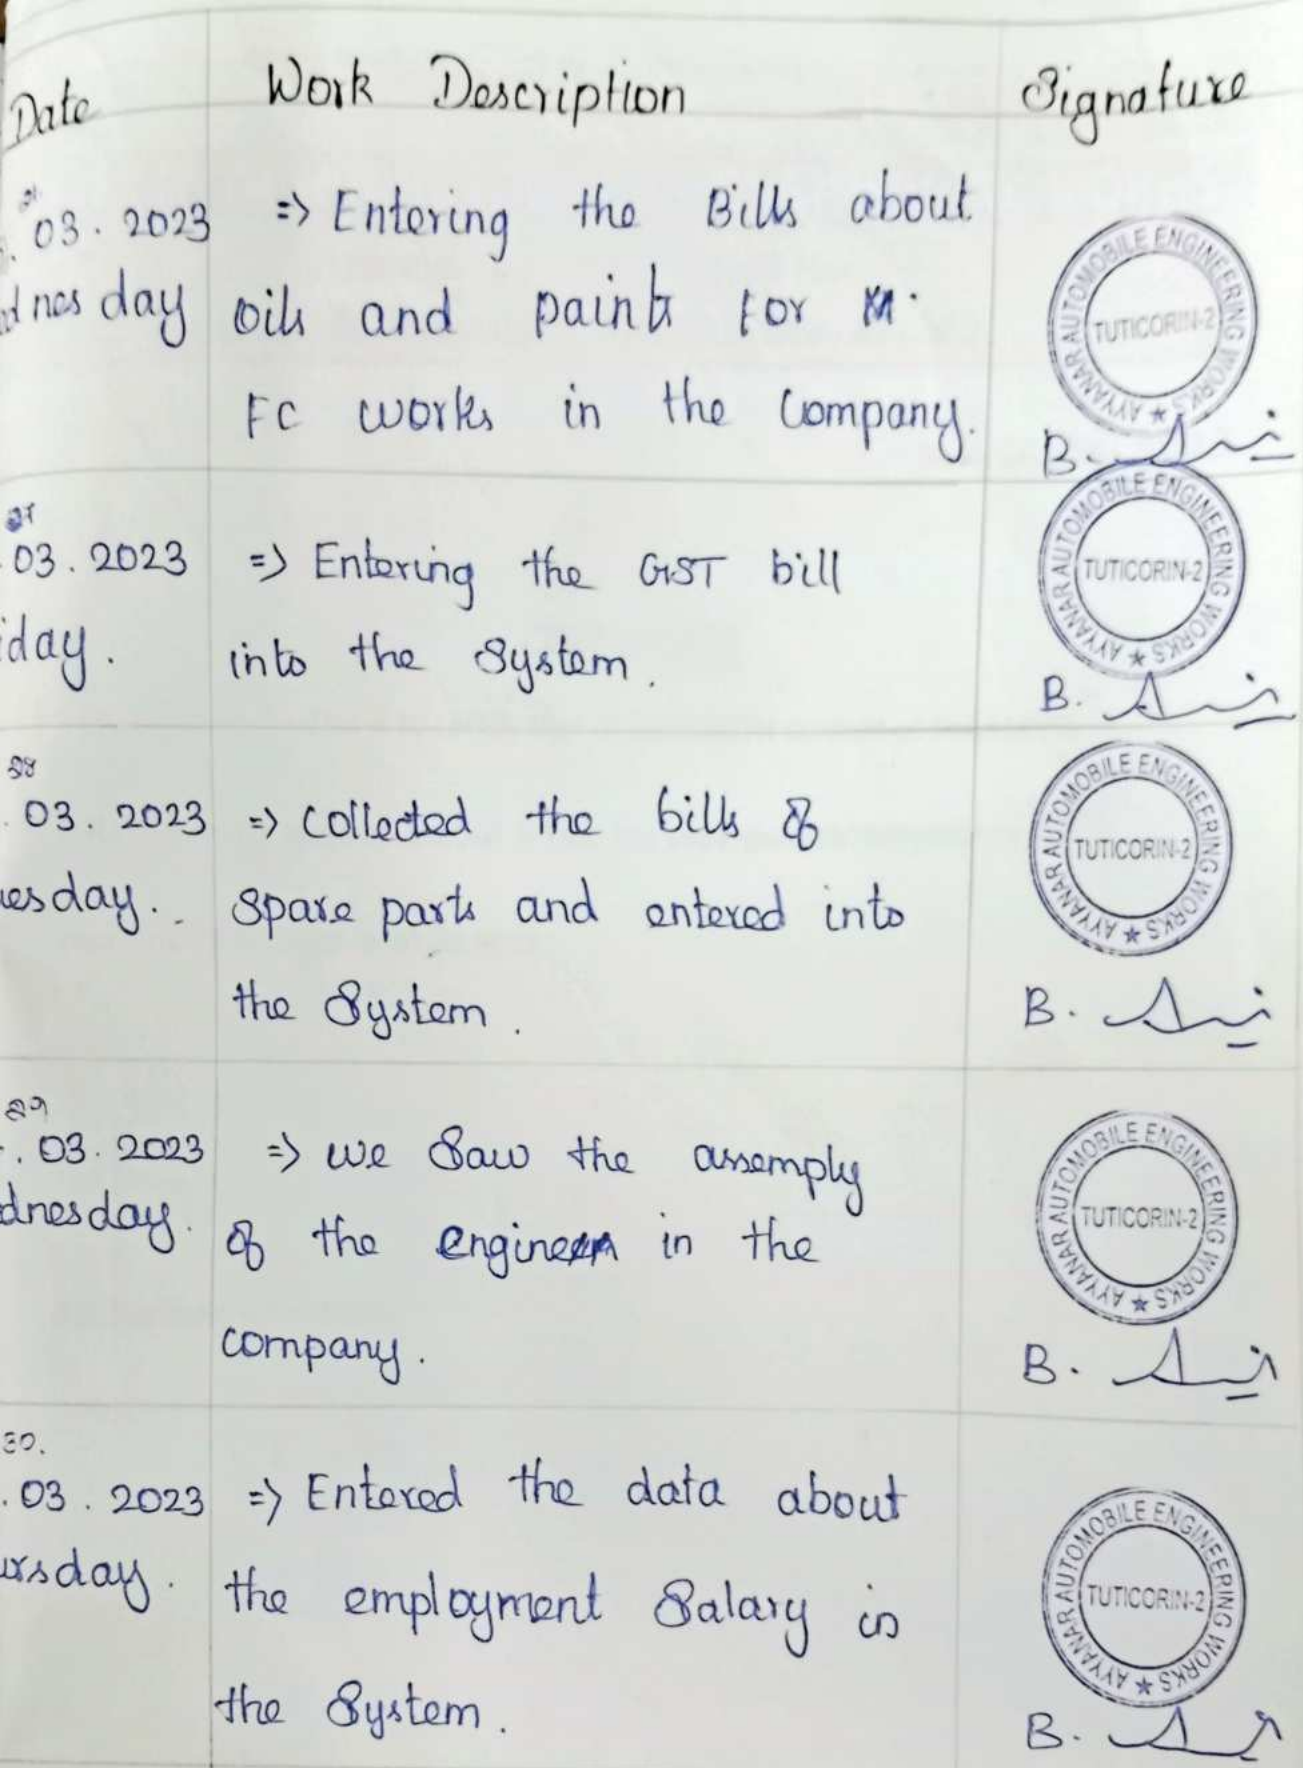 Date Work Description Signature
03.2023 => Entering the Bills about
dnes day oils and paints for
FC works in the Company.
AYYANAR AUTOMOBILE ENGINEERING WORKS ★ TUTICORIN-2
B.
03.2023 => Entering the GST bill
iday. into the System.
AYYANAR AUTOMOBILE ENGINEERING WORKS ★ TUTICORIN-2
B.
28
03.2023 => Collected the bills of
esday. Spare parts and entered into
the System.
AYYANAR AUTOMOBILE ENGINEERING WORKS ★ TUTICORIN-2
B.
29
.03.2023 => We Saw the assemply
dnesday. of the engine in the
company.
AYYANAR AUTOMOBILE ENGINEERING WORKS ★ TUTICORIN-2
B.
30.
.03.2023 => Entered the data about
ursday. the employment Salary in
the System.
AYYANAR AUTOMOBILE ENGINEERING WORKS ★ TUTICORIN-2
B.